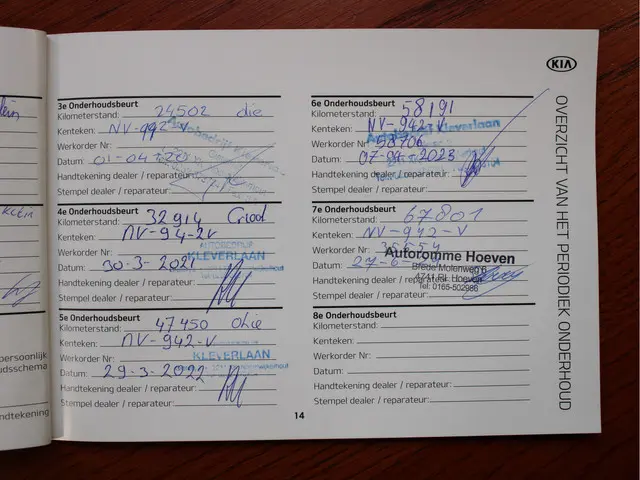 KIA
OVERZICHT VAN HET PERIODIEK ONDERHOUD
3e Onderhoudsbeurt
Kilometerstand: 24502 olie
Kenteken: NV-942-V
Werkorder Nr:
Datum: 01-04-'20
Handtekening dealer / reparateur:
Stempel dealer / reparateur:
4e Onderhoudsbeurt
Kilometerstand: 32914 Groot
Kenteken: NV-94-2V
AUTOBEDRIJF
Werkorder Nr: KLEVERLAAN
Datum: 30-3-2021
Handtekening dealer / reparateur:
Stempel dealer / reparateur:
5e Onderhoudsbeurt
Kilometerstand: 47450 Olie
Kenteken: NV-942-V
Werkorder Nr: KLEVERLAAN
Datum: 29-3-2022
Handtekening dealer / reparateur:
Stempel dealer / reparateur:
6e Onderhoudsbeurt
Kilometerstand: 58191
Kenteken: NV-942-V
Kleverlaan
Werkorder Nr: 58706
Datum: 07-04-2023
Handtekening dealer / reparateur:
Stempel dealer / reparateur:
7e Onderhoudsbeurt
Kilometerstand: 67801
Kenteken: NV-942-V
Werkorder Nr: 35554
Autoromme Hoeven
Datum: 27-6-
Brede Molenweg 6
Handtekening dealer / reparateur: 4741 RL Hoeven
Tel: 0165-502986
Stempel dealer / reparateur:
8e Onderhoudsbeurt
Kilometerstand:
Kenteken:
Werkorder Nr:
Datum:
Handtekening dealer / reparateur:
Stempel dealer / reparateur:
14